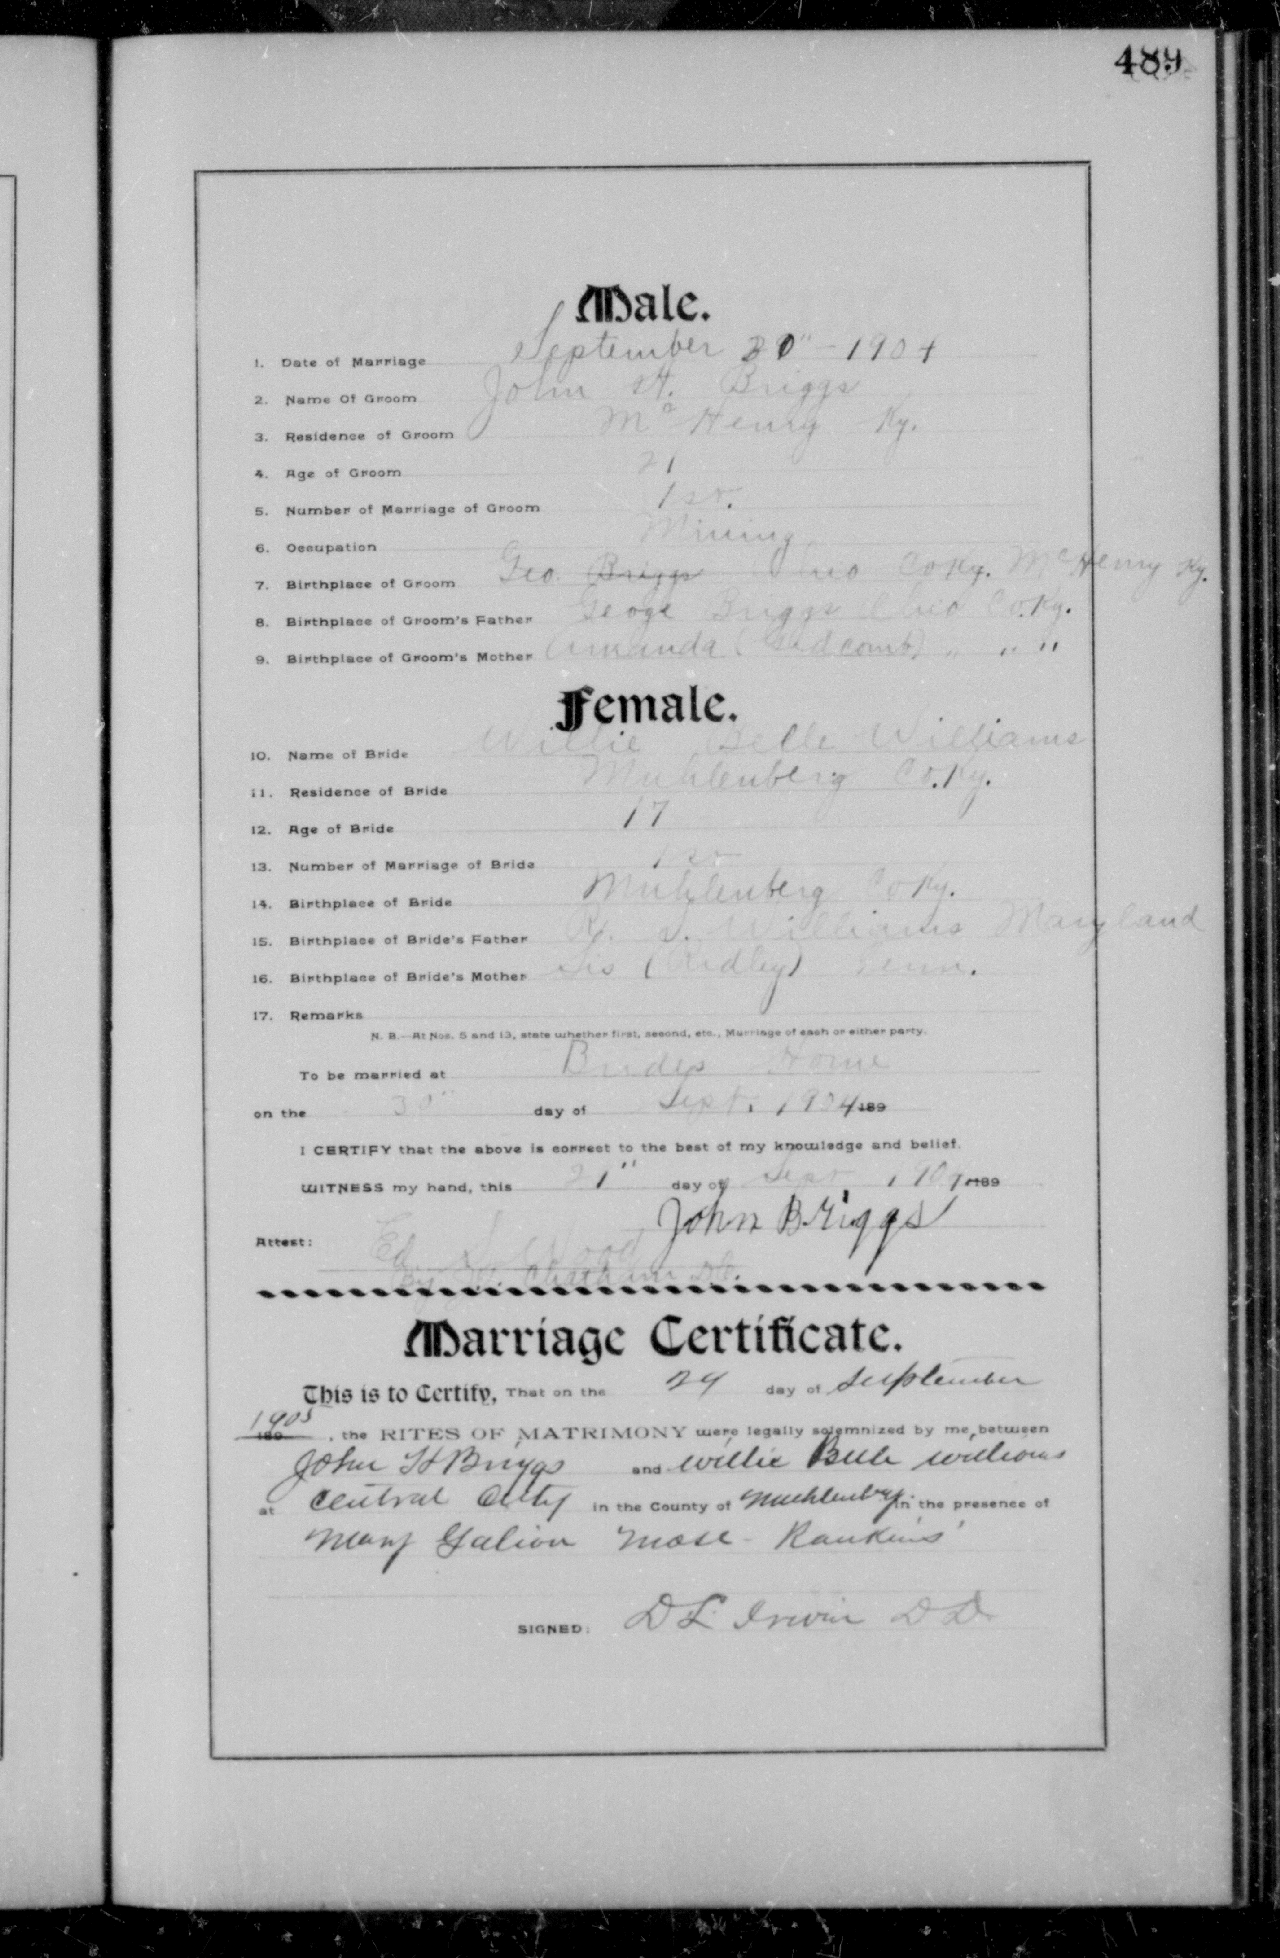 489
Male.
1. Date of Marriage September 30" - 1904
2. Name Of Groom John H. Briggs
3. Residence of Groom McHenry Ky.
4. Age of Groom 21
5. Number of Marriage of Groom 1st.
6. Occupation Mining
7. Birthplace of Groom Geo. Briggs Ohio Co Ky. McHenry Ky.
8. Birthplace of Groom's Father Geoge Briggs Ohio Co. Ky.
9. Birthplace of Groom's Mother Amanda ( " " "
Female.
10. Name of Bride Willie Belle Williams
11. Residence of Bride Muhlenberg Co. Ky.
12. Age of Bride 17
13. Number of Marriage of Bride 1st
14. Birthplace of Bride Muhlenberg Co Ky.
15. Birthplace of Bride's Father Williams Maryland
16. Birthplace of Bride's Mother Sis (Ridley) Tenn.
17. Remarks
N. B.—At Nos. 5 and 13, state whether first, second, etc., Marriage of each or either party.
To be married at Brides Home
on the 30" day of Sept. 1904 189
I CERTIFY that the above is correct to the best of my knowledge and belief.
WITNESS my hand, this 21" day of Sept 1904 189
John Briggs
Attest: Ed. S. Wood
By Chatham D.C.
Marriage Certificate.
This is to Certify, That on the 29 day of September
1905 189 , the RITES OF MATRIMONY were legally solemnized by me, between
John H Briggs and Willie Belle Williams
at Central City in the County of Muhlenberg in the presence of
Mary Galion Mose - Rankins
SIGNED: D L Irwin D D